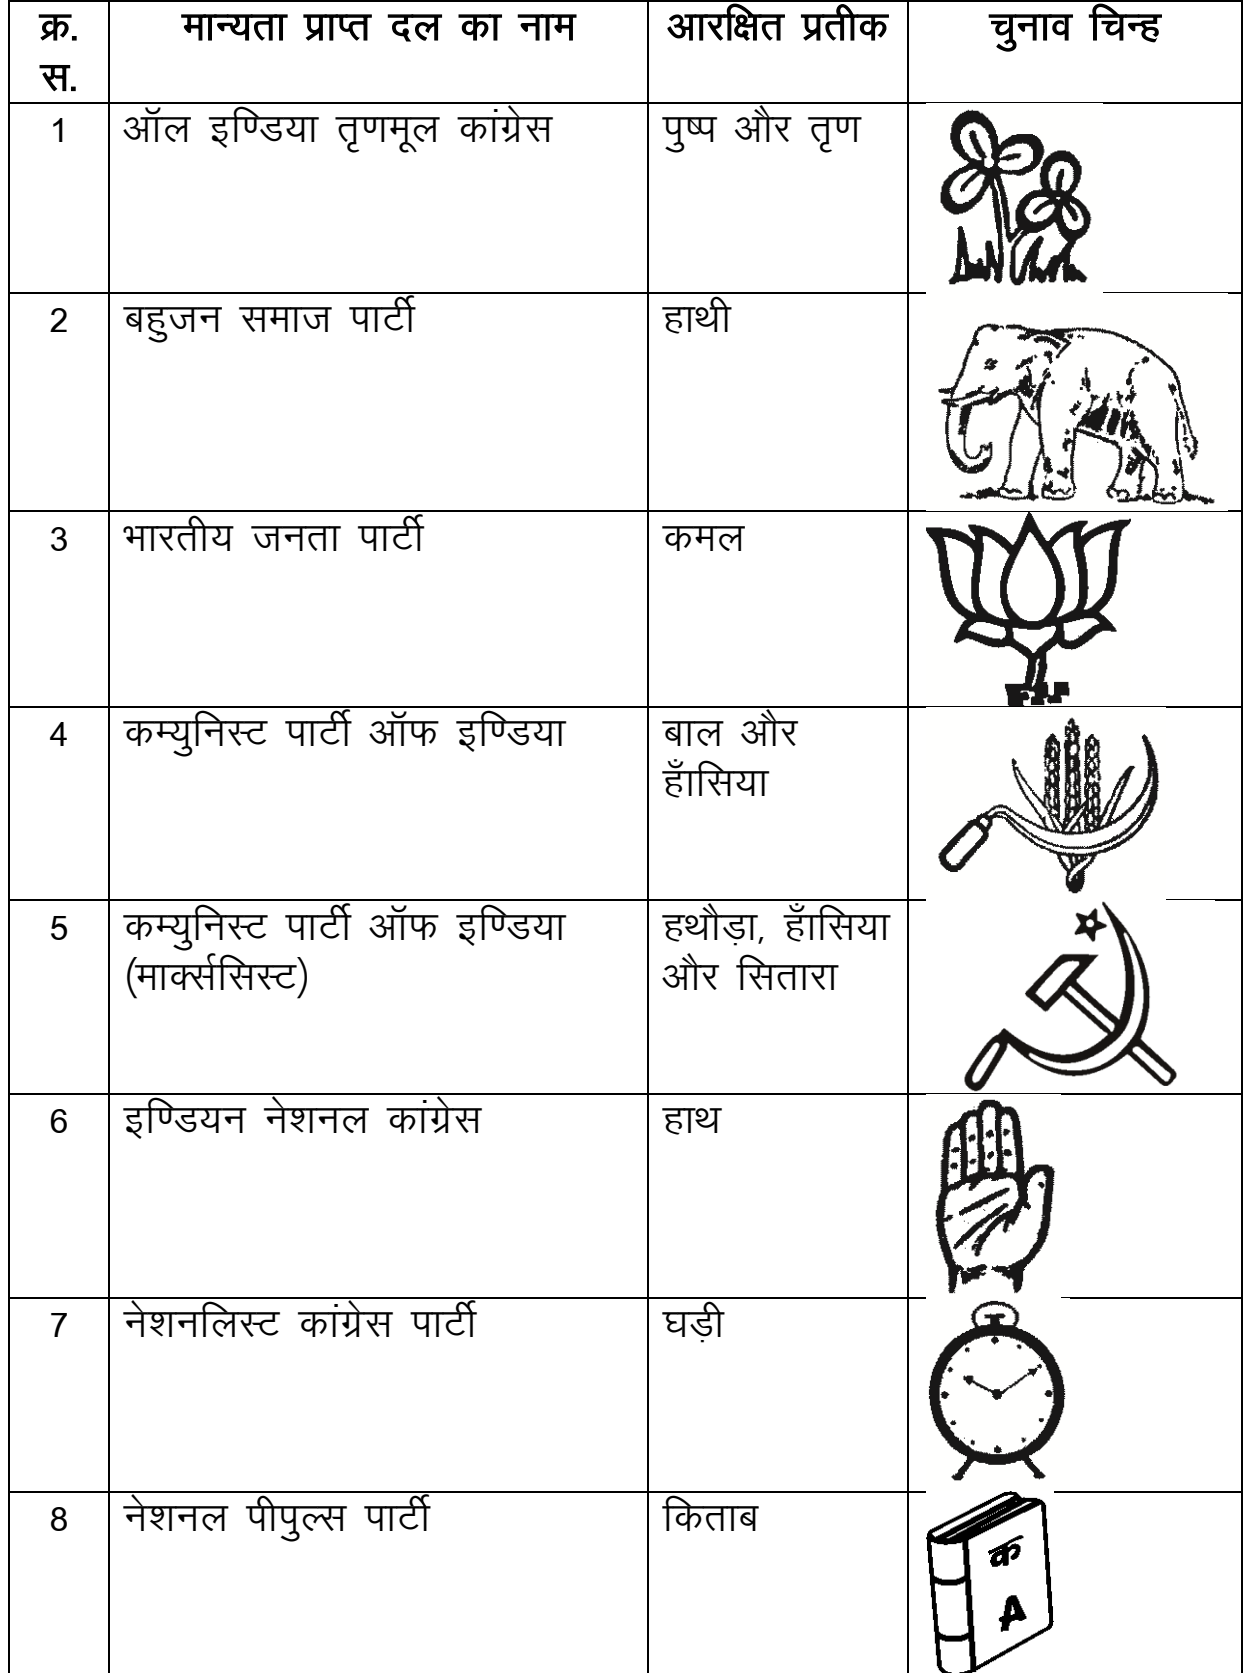 क्र. मान्यता प्राप्त दल का नाम आरक्षित प्रतीक चुनाव चिन्ह
स.
1 ऑल इण्डिया तृणमूल कांग्रेस पुष्प और तृण
2 बहुजन समाज पार्टी हाथी
3 भारतीय जनता पार्टी कमल
4 कम्युनिस्ट पार्टी ऑफ इण्डिया बाल और
हँासिया
5 कम्युनिस्ट पार्टी ऑफ इण्डिया हथौड़ा, हँासिया
(मार्क्ससिस्ट) और सितारा
6 इण्डियन नेशनल कांग्रेस हाथ
7 नेशनलिस्ट कांग्रेस पार्टी घड़ी
8 नेशनल पीपुल्स पार्टी किताब
क
A